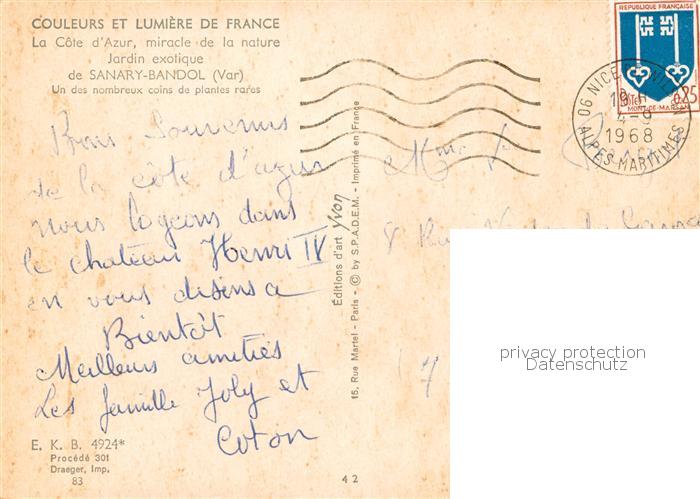 COULEURS ET LUMIÈRE DE FRANCE
La Côte d'Azur, miracle de la nature
Jardin exotique
de SANARY-BANDOL (Var)
Un des nombreux coins de plantes rares
Bons Souvenirs
de la côte d'azur
nous logeons dans
le chateau Henri IV
en vous disens a
Bientôt
Meilleurs amitiés
Les famille Joly et
Coton
E. K. B. 4924*
Procédé 301
Draeger, Imp.
83
42
Éditions d'art Yvon
15, Rue Martel - Paris - © by S.P.A.D.E.M. - Imprimé en France
REPUBLIQUE FRANÇAISE
POSTES 0,25
MONT-DE-MARSAN
06 NICE
4-9
1968
ALPES-MARITIMES
Mme
8 Rue
privacy protection
Datenschutz